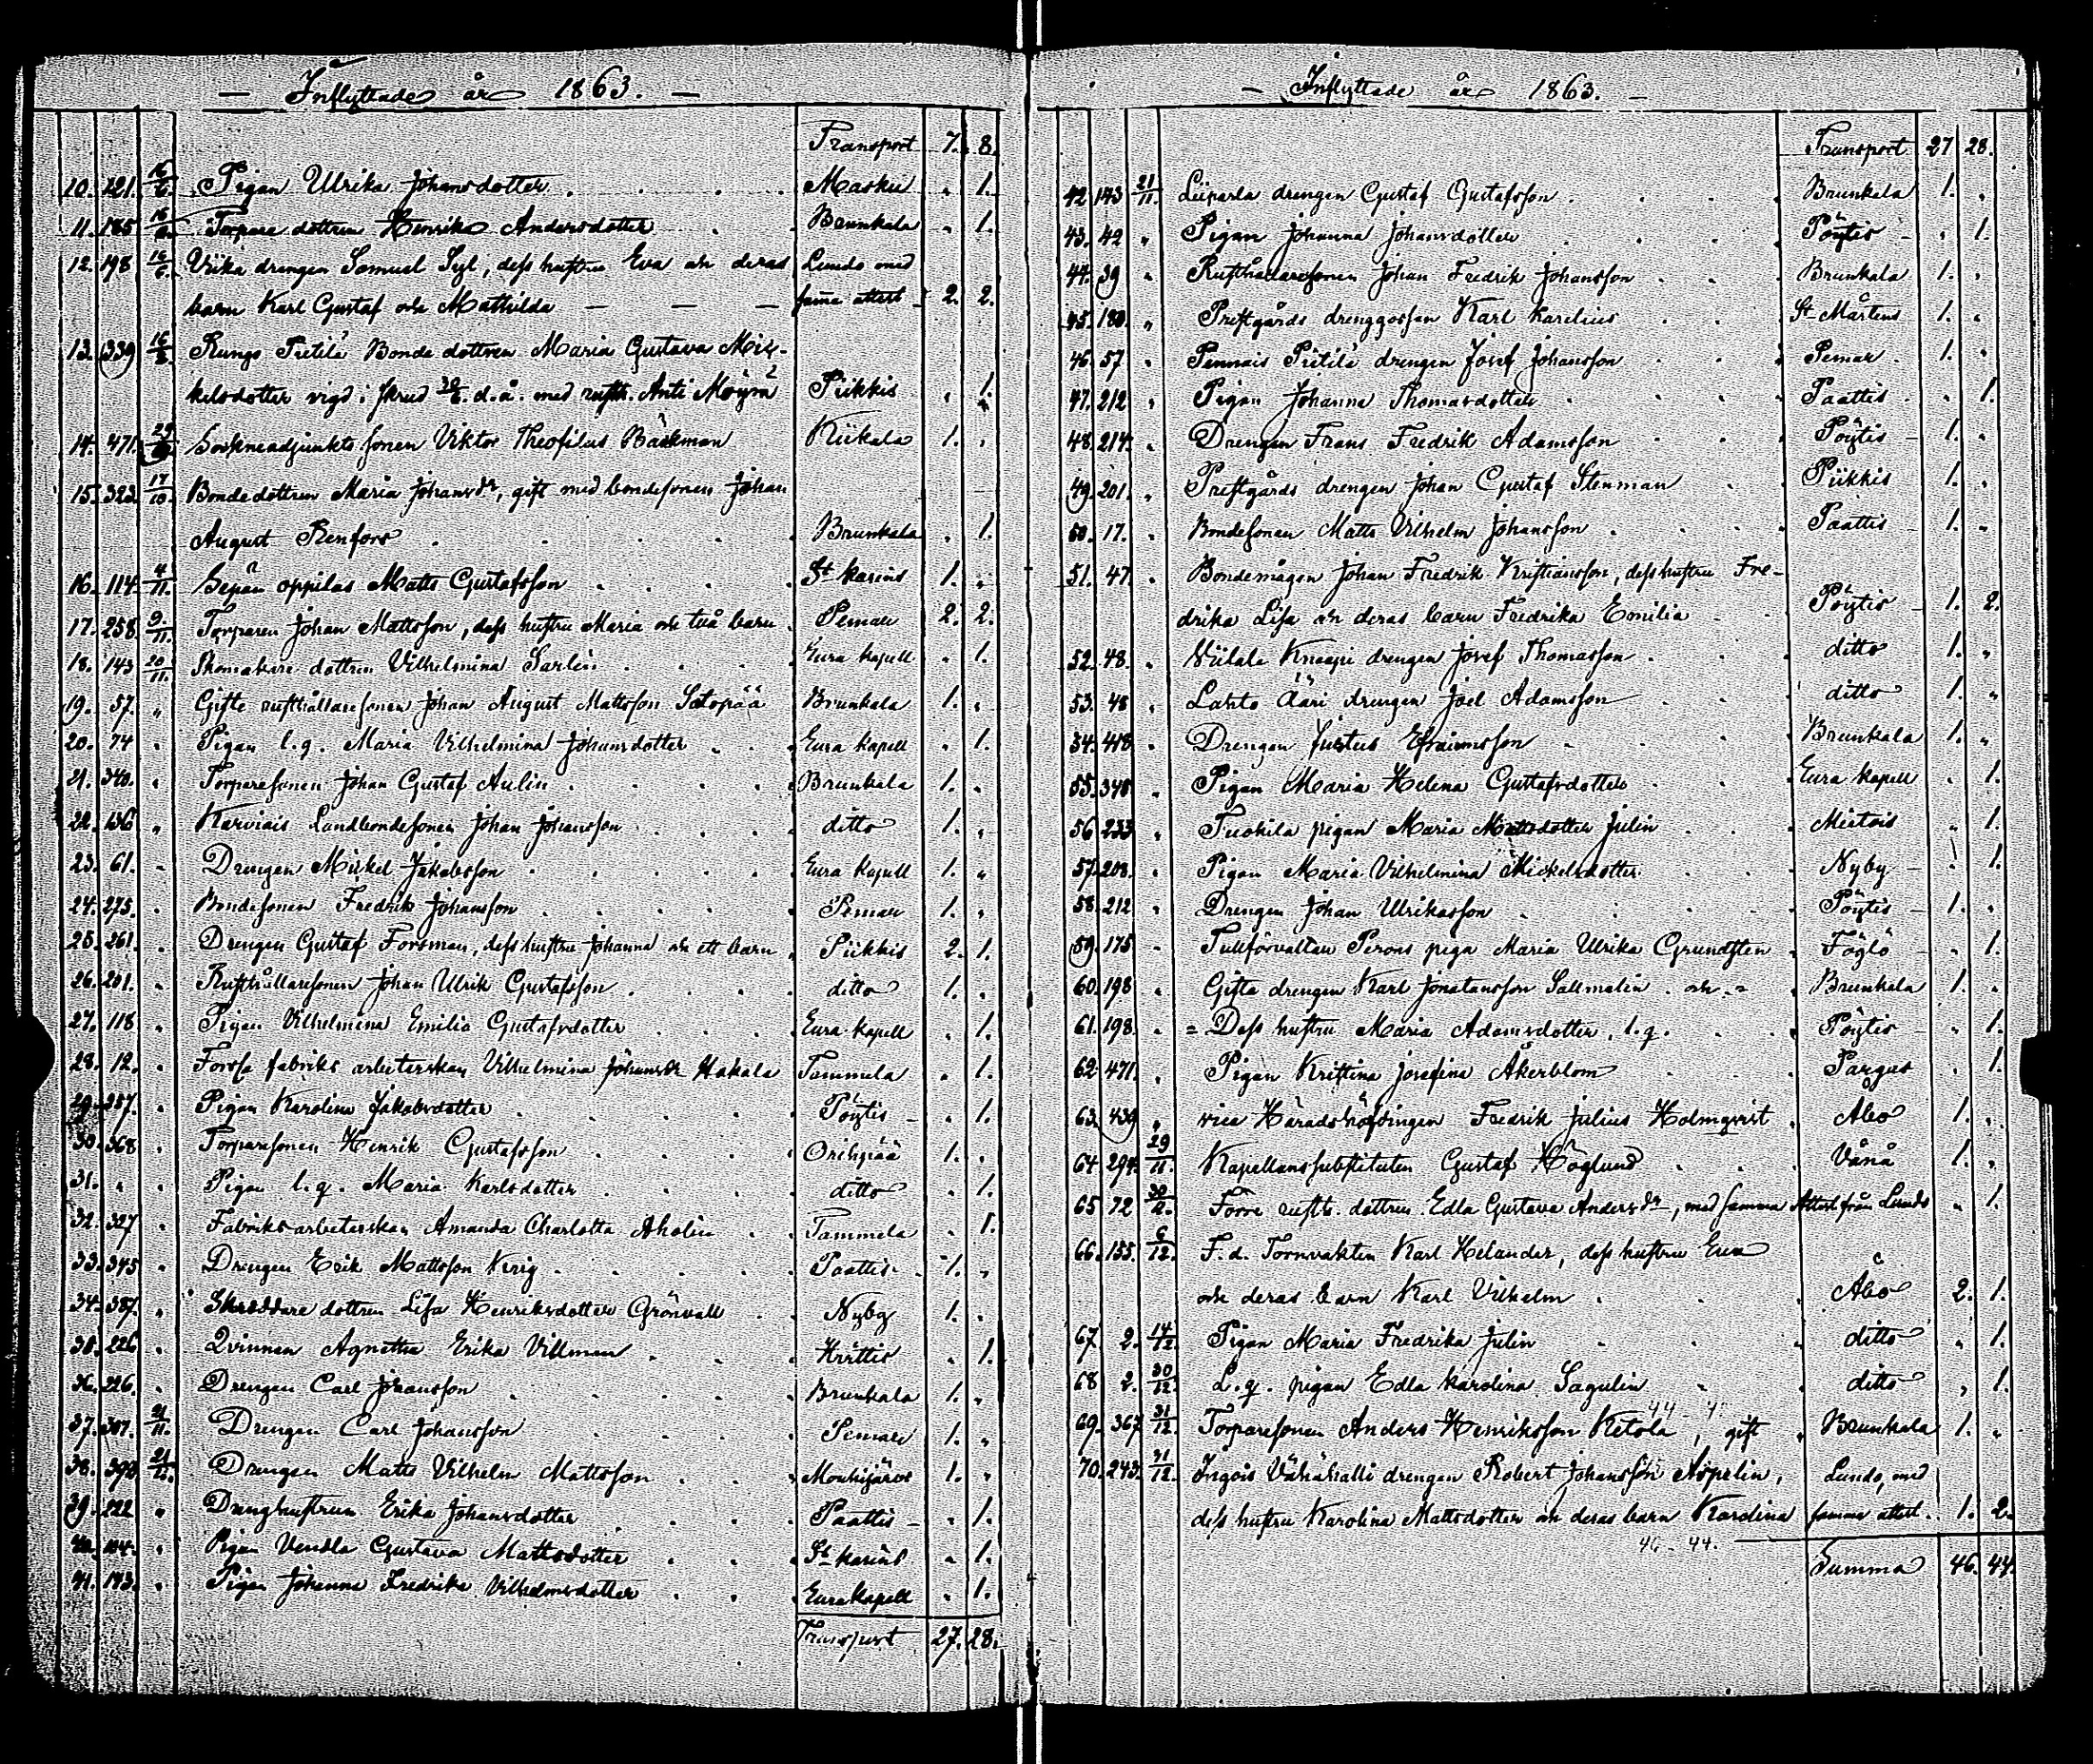 — Inflyttade år 1863. —
Transport 7. 8.
10. 221. 16/6. Pigan Ulrika Johansdotter . . . . Masku „ 1.
11. 185 16/6. Torpare dottren Henrika Andersdotter . . Brunkala „ 1.
12. 198 16/6. drengen Samuel Syl, dess hustru Eva och deras Lundo med
barn Karl Gustaf och Mathilda — — — samma attest 2. 2.
13. 339 16/ Rungo Pietilä Bonde dottren Maria Gustava Mic-
kelsdotter vigd i d. å. med rusth. Anti Piikkis „ 1.
14. 471. 29/ Sockneadjunkts sonen Viktor Theofilus Bäckman Kiikala 1. „
15. 323. 17/10. Bondedottren Maria Johansdr, gift med bondesonen Johan
August Renfors . . . . . Brunkala „ 1.
16. 114. 4/11. Sepän oppilas Matts Gustafsson . . . St Karins 1. „
17. 258. 9/11. Torparen Johan Mattsson, dess hustru Maria och två barn Pemar 2. 2.
18. 143 20/11. Skomakare dottren Vilhelmina Sarlin . . . Eura kapell „ 1.
19. 57. „ Gifte rusthållaresonen Johan August Mattsson Satopää Brunkala 1. „
20. 74 „ Pigan l. q. Maria Vilhelmina Johansdotter . . Eura kapell „ 1.
21. 340. „ Torparesonen Johan Gustaf Aulin . . . . Brunkala 1. „
22. 136 „ Karviais Landbondesonen Johan Johansson . . . ditto 1. „
23. 61. „ Drengen Mickel Jakobsson . . . . Eura kapell 1. „
24. 275. „ Bondesonen Fredrik Johansson . . . . Pemar 1. „
25. 261. „ Drengen Gustaf Forsman, dess hustru Johanna och ett barn Piikkis 2. 1.
26. 201. „ Rusthållaresonen Johan Ulrik Gustafsson . . . ditto 1. „
27. 118 „ Pigan Vilhelmina Emilia Gustafsdotter . . . Eura kapell „ 1.
28. 12. „ Forssa fabriks arbeterskan Vilhelmina Johansdr Hakala Tammela „ 1.
29. 357. „ Pigan Karolina Jakobsdotter . . . . Pöytis „ 1.
30. 368 „ Torparesonen Henrik Gustafsson . . . . Oripää 1. „
31. „ „ Pigan l. q. Maria Karlsdotter . . . . ditto „ 1.
32. 327 „ Fabriksarbeterskan Amanda Charlotta Aholin . . Tammela „ 1.
33. 345 „ Drengen Erik Mattsson Kerig . . . . Paattis 1. „
34. 387. „ Skräddare dottren Lisa Henriksdotter Grönvall . Nyby 1. „
35. 226 „ Qvinnan Agnetha Erika Villman . . . Hvittis „ 1.
36. 226. „ Drengen Carl Johansson . . . . Brunkala 1. „
37. 307. 21/11. Drengen Carl Johansson . . . . Pemar 1. „
38. 390 21/ Drengen Matts Vilhelm Mattsson . . . Mouhijärvi 1. „
39. 222 „ Dränghustrun Erika Johansdotter . . . Paattis „ 1.
40. 104. „ Pigan Vendla Gustava Mattsdotter . . . St Karins „ 1.
41. 143. „ Pigan Johanna Fredrika Vilhelmsdotter . . . Eura kapell „ 1.
Transport 27. 28.
— Inflyttade år 1863. —
Transport 27 28.
42 143 21/11. Liiparla drengen Gustaf Gustafsson . . . Brunkala 1. „
43. 42 „ Pigan Johanna Johansdotter . . . Pöytis „ 1.
44. 39 „ Rusthållaresonen Johan Fredrik Johansson . . Brunkala 1. „
45. 180. „ Prestgårds drenggossen Karl Karelius . . St Mårtens 1. „
46. 57 „ Pennais Pietilä drengen Josef Johansson . . Pemar 1. „
47. 212 „ Pigan Johanna Thomasdotter . . . Paattis „ 1.
48. 214. „ Drengen Frans Fredrik Adamsson . . . Pöytis 1. „
49. 201. „ Prestgårds drengen Johan Gustaf Stenman . . Piikkis 1. „
50. 17. „ Bondesonen Matts Vilhelm Johansson . . . Paattis 1. „
51. 47. „ Bondemågen Johan Fredrik Kristiansson, dess hustru Fre-
drika Lisa och deras barn Fredrika Emilia . Pöytis 1. 2.
52. 48. „ Viilala Knaapi drengen Josef Thomasson . . ditto 1. „
53. 48 „ Lahto Ääri drengen Joel Adamsson . . ditto 1. „
54. 418 „ Drengen Justus Efraimsson . . . Brunkala 1. „
55. 348 „ Pigan Maria Helena Gustafsdotter . . Eura kapell „ 1.
56 233 „ Tuohila pigan Maria Mattsdotter Julin . . Mietois „ 1.
57. 208. „ Pigan Maria Vilhelmina Mickelsdotter . . Nyby „ 1.
58. 212 „ Drengen Johan Ulriksson . . . Pöytis 1. „
59. 175 „ Tullförvaltau Perons piga Maria Ulrika Grundsten Föglö „ 1.
60. 198 „ Gifta drengen Karl Jonatansson Sallmelin . och = Brunkala 1. „
61. 198. „ = Dess hustru Maria Adamsdotter . l. q. . . Pöytis „ 1.
62. 471. „ Pigan Kristina Josefina Åkerblom . . . Pargas „ 1.
63. 439 „ vice Häradshöfdingen Fredrik Julius Holmqvist Åbo 1. „
64 294. 29/11. Kapellanssubstituten Gustaf Höglund . . Vånå 1. „
65 72 30/ Förre rusth. dottren Edla Gustava Andersdr, med samma Attest från Lundo „ 1.
66. 155. 6/12. F. d. Tornvakten Karl Helander, dess hustru Eva
och deras barn Karl Vilhelm . . . Åbo 2. 1.
67 2. 14/12. Pigan Maria Fredrika Julin . . . ditto „ 1.
68 2. 30/12. L. q. pigan Edla Karolina Sagulin . . ditto „ 1.
69. 367 31/12. Torparesonen Anders Henriksson Ketola, gift . Brunkala 1. „
70. 243. 31/12. Ingois Vähähalli drengen Robert Johansson Aspelin, Lundo, med
dess hustru Karolina Mattsdotter och deras barn Karolina samma attest. 1. 2.
46 - 44.
Summa 46. 44.